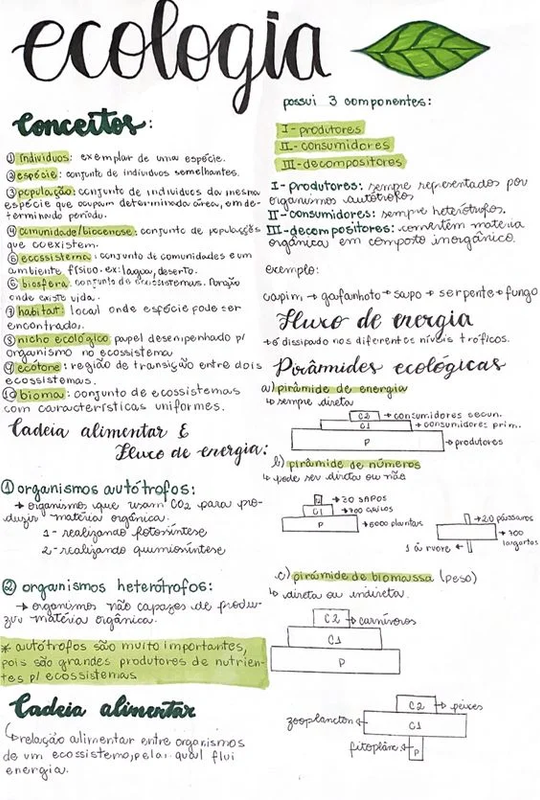 ecologia
Conceitos:
① indivíduos: exemplar de uma espécie.
② espécie: conjunto de indivíduos semelhantes.
③ população: conjunto de indivíduos da mesma
espécie que ocupam determinada área, em de-
terminado período.
④ comunidade/biocenose: conjunto de populações
que coexistem.
⑤ ecossistema: conjunto de comunidades e um
ambiente físico. ex: lagoa, deserto.
⑥ biosfera: conjunto de ecossistemas. Porção
onde existe vida.
⑦ habitat: local onde espécie pode ser
encontrada.
⑧ nicho ecológico: papel desempenhado p/
organismo no ecossistema
⑨ ecótone: região de transição entre dois
ecossistemas.
⑩ bioma: conjunto de ecossistemas
com características uniformes.
Cadeia alimentar E
Fluxo de energia:
① organismos autótrofos:
→ organismos que usam CO2 para pro-
duzir matéria orgânica.
1- realizando fotossíntese
2- realizando quimiossíntese
② organismos heterótrofos:
→ organismos não capazes de produ-
zir matéria orgânica.
* autótrofos são muito importantes,
pois são grandes produtores de nutrien-
tes p/ ecossistemas
Cadeia alimentar
↳ relação alimentar entre organismos
de um ecossistema, pela qual flui
energia.
possui 3 componentes:
I- produtores
II- consumidores
III- decompositores
I- produtores: sempre representados por
organismos autótrofos
II- consumidores: sempre heterótrofos.
III- decompositores: convertem matéria
orgânica em composto inorgânico.
exemplo:
capim → gafanhoto → sapo → serpente → fungo
Fluxo de energia
→ é dissipado nos diferentes níveis tróficos.
Pirâmides ecológicas
a) pirâmide de energia
↳ sempre direta
C2 → consumidores secun.
C1 → consumidores prim.
P → produtores
b) pirâmide de números
↳ pode ser direta ou não
C2 → 20 sapos
C1 → 300 grilos
P → 6000 plantas
→ 20 pássaros
→ 100
lagartas
1 árvore ←
c) pirâmide de biomassa (peso)
↳ direta ou indireta.
C2 → carnívoros
C1
P
C2 → peixes
zooplancton ← C1
fitoplânc. ← P